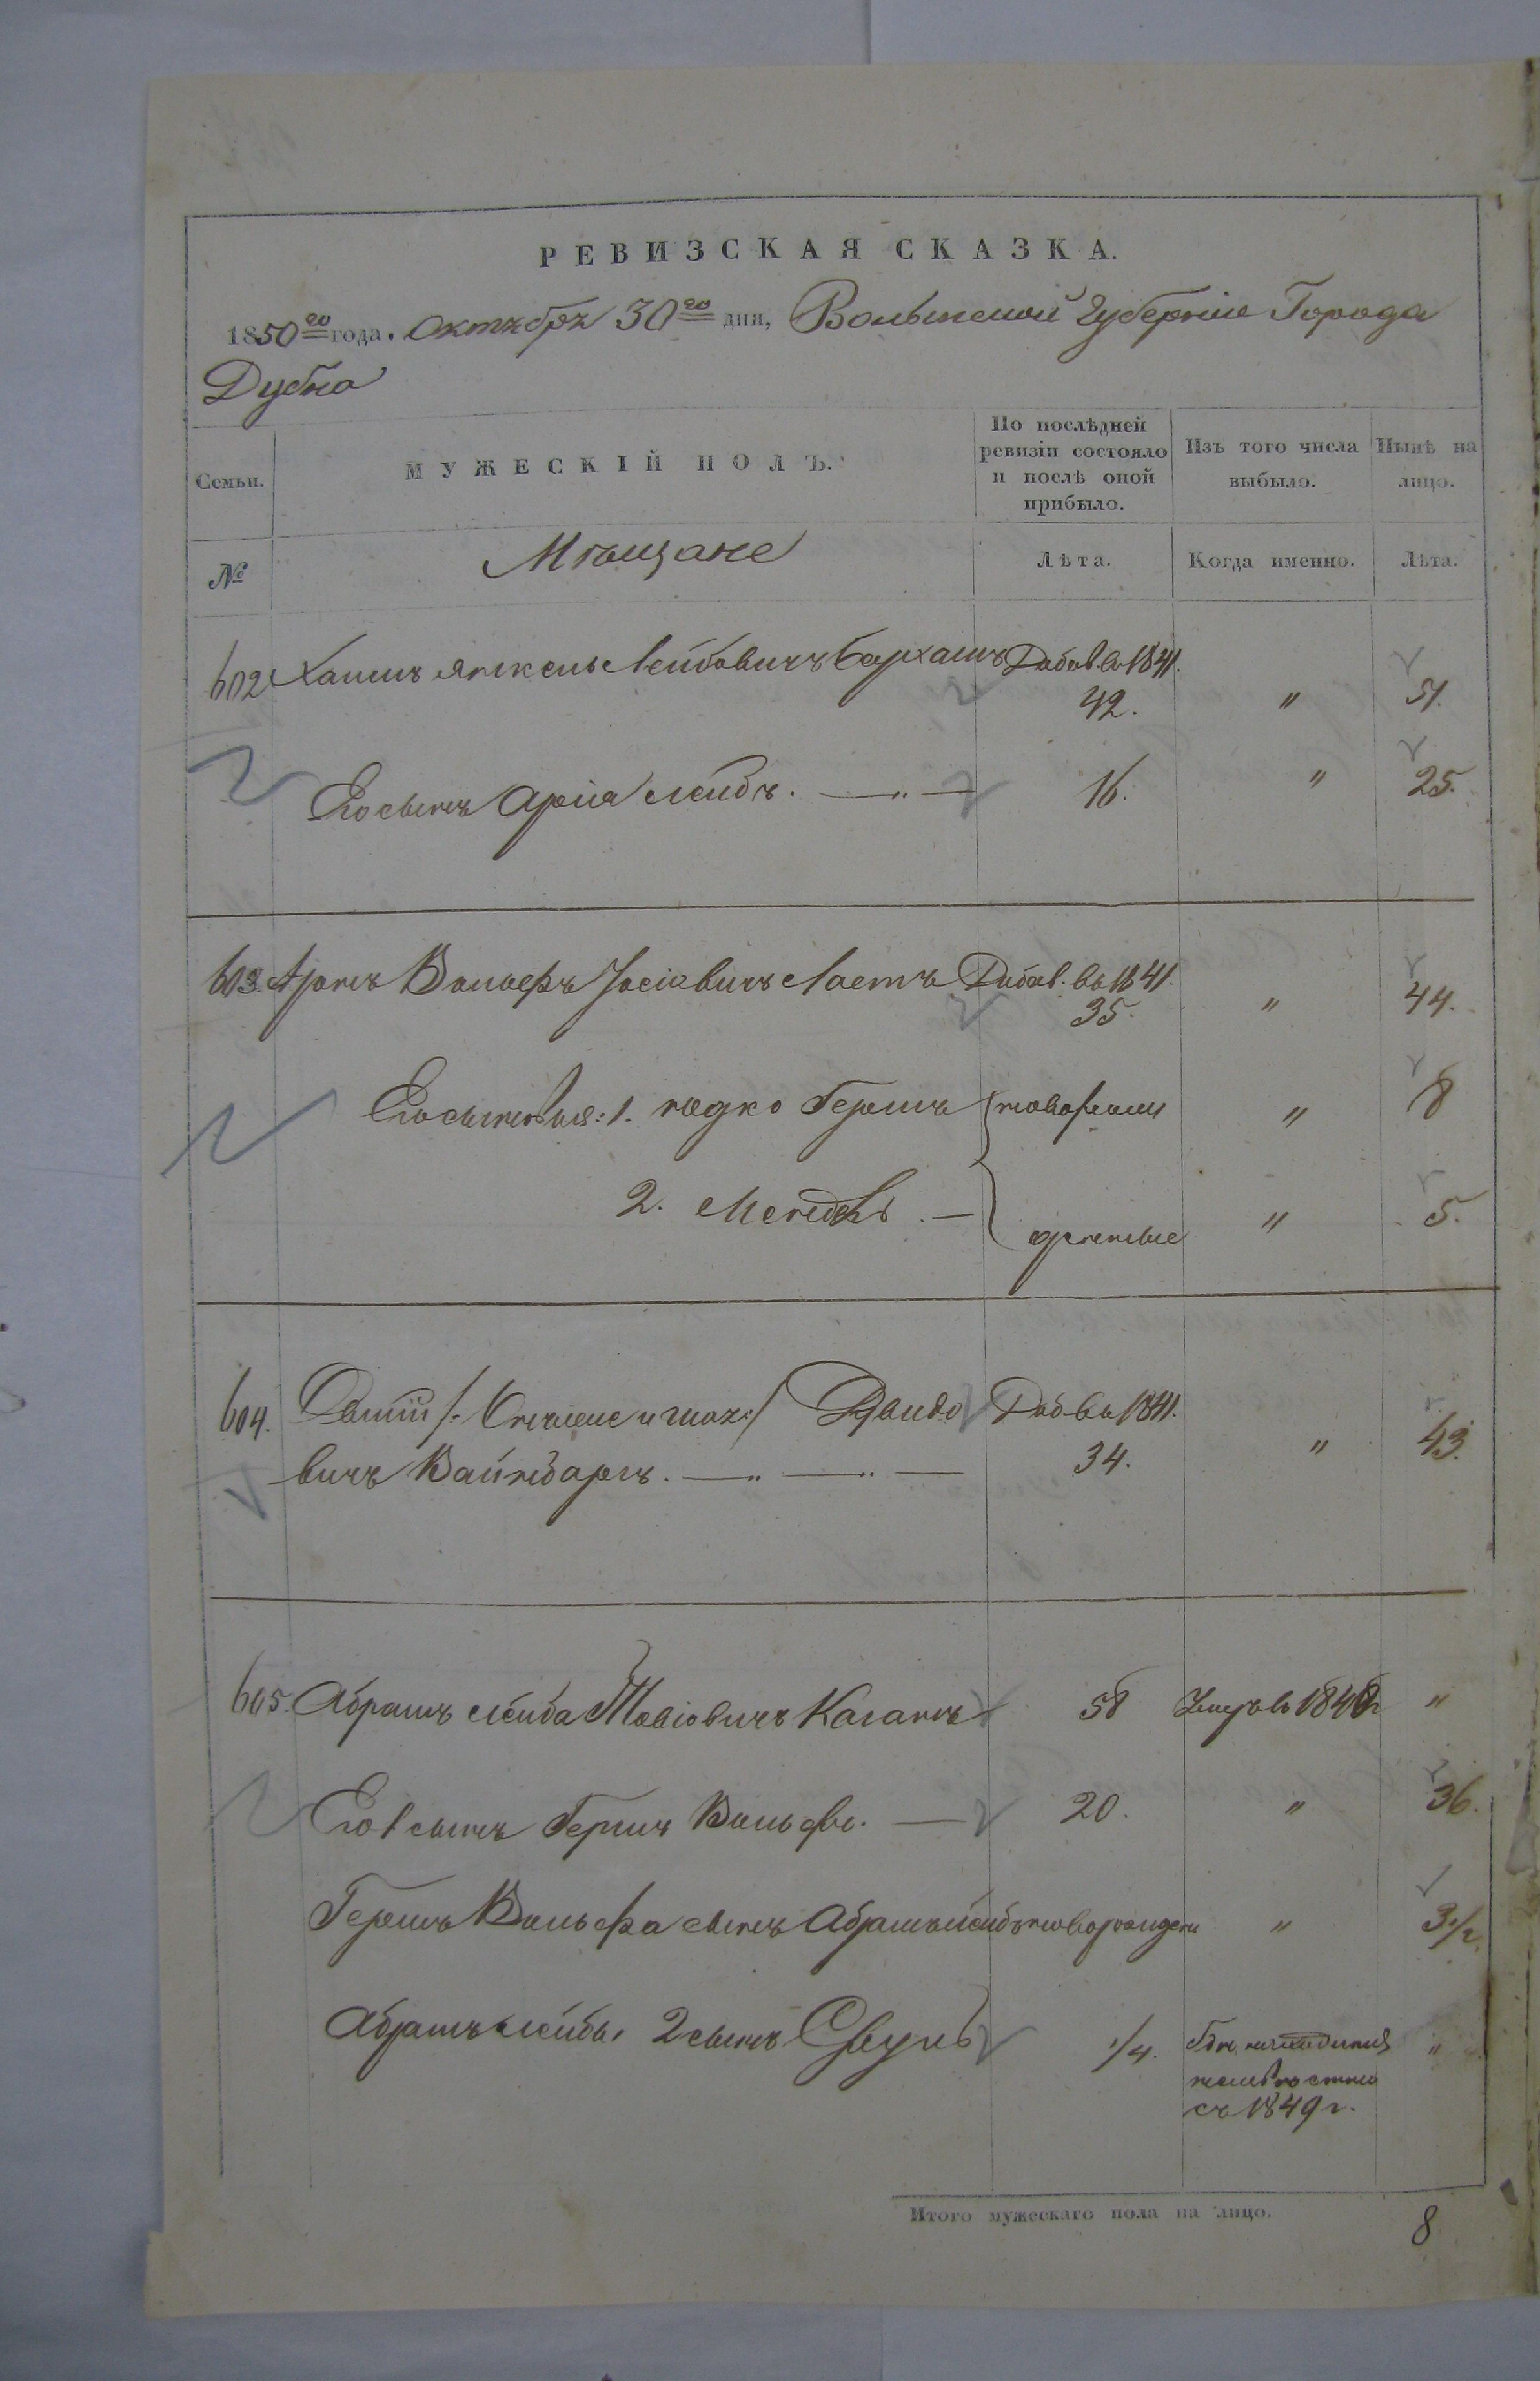 РЕВИЗСКАЯ СКАЗКА.
1850го года. Октября 30го дня, Волынской Губерніи Города
Дубно
Семьи.
МУЖЕСКІЙ ПОЛЪ.
По послѣдней ревизіи состояло и послѣ оной прибыло.
Изъ того числа выбыло.
Нынѣ на лицо.
№
Мѣщане
Лѣта.
Когда именно.
Лѣта.
602 Хаимъ Янкель Лейбовичъ Добав. въ 1841.
42. " 51.
Его сынъ Аріа Лейбъ. 16. " 25.
603. Аронъ Вольфъ Іосіовичъ Ластъ Добав. въ 1841.
35. " 44.
Его сыновья: 1. Гершъ новорожи " 8
2. Мендель денные " 5.
604. Давидо Доб. въ 1841.
вичъ Вайнбаргъ. 34. " 43.
605. Абрамъ Лейба Товіовичъ Каганъ 58 Умеръ въ "
Его 1 сынъ Гершъ Вольфъ. 20. " 36.
Гершъ Вольфа сынъ Абрамъ Лейбъ новорожден " 3 1/2.
Абрамъ Лейбы 2 сынъ Сруль 1/4. "
съ 1849 г.
Итого мужескаго пола на лицо. 8